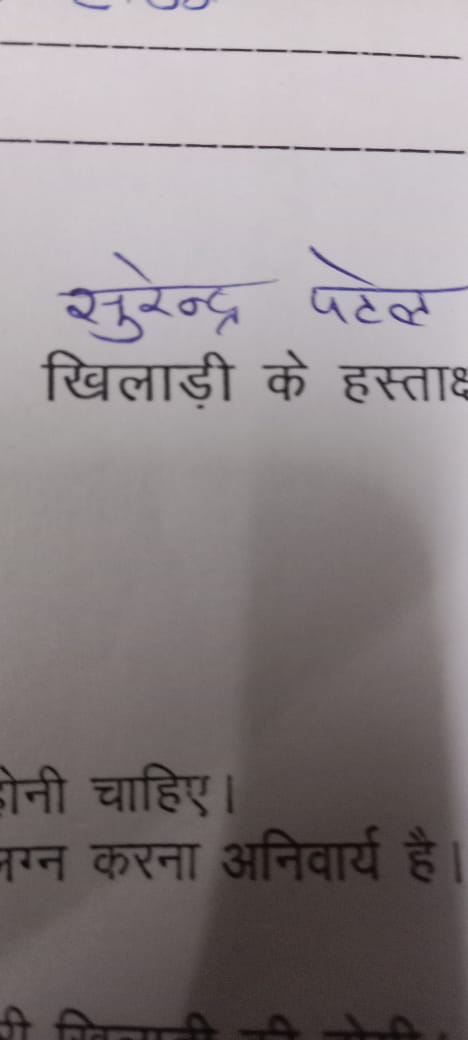 सुरेन्द्र पटेल
खिलाड़ी के हस्ताक्ष
होनी चाहिए।
करना अनिवार्य है।